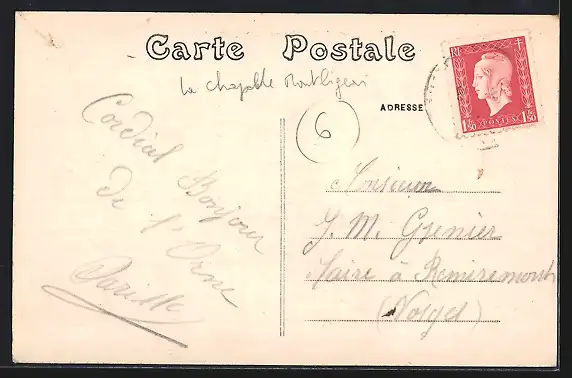 Carte Postale
La chapelle Montligeon
ADRESSE
RF
1F50 POSTES 1F50
6
Cordial Bonjour
de l'Orne
Monsieur
J. M. Grenier
Maire à Remiremont
(Vosges)